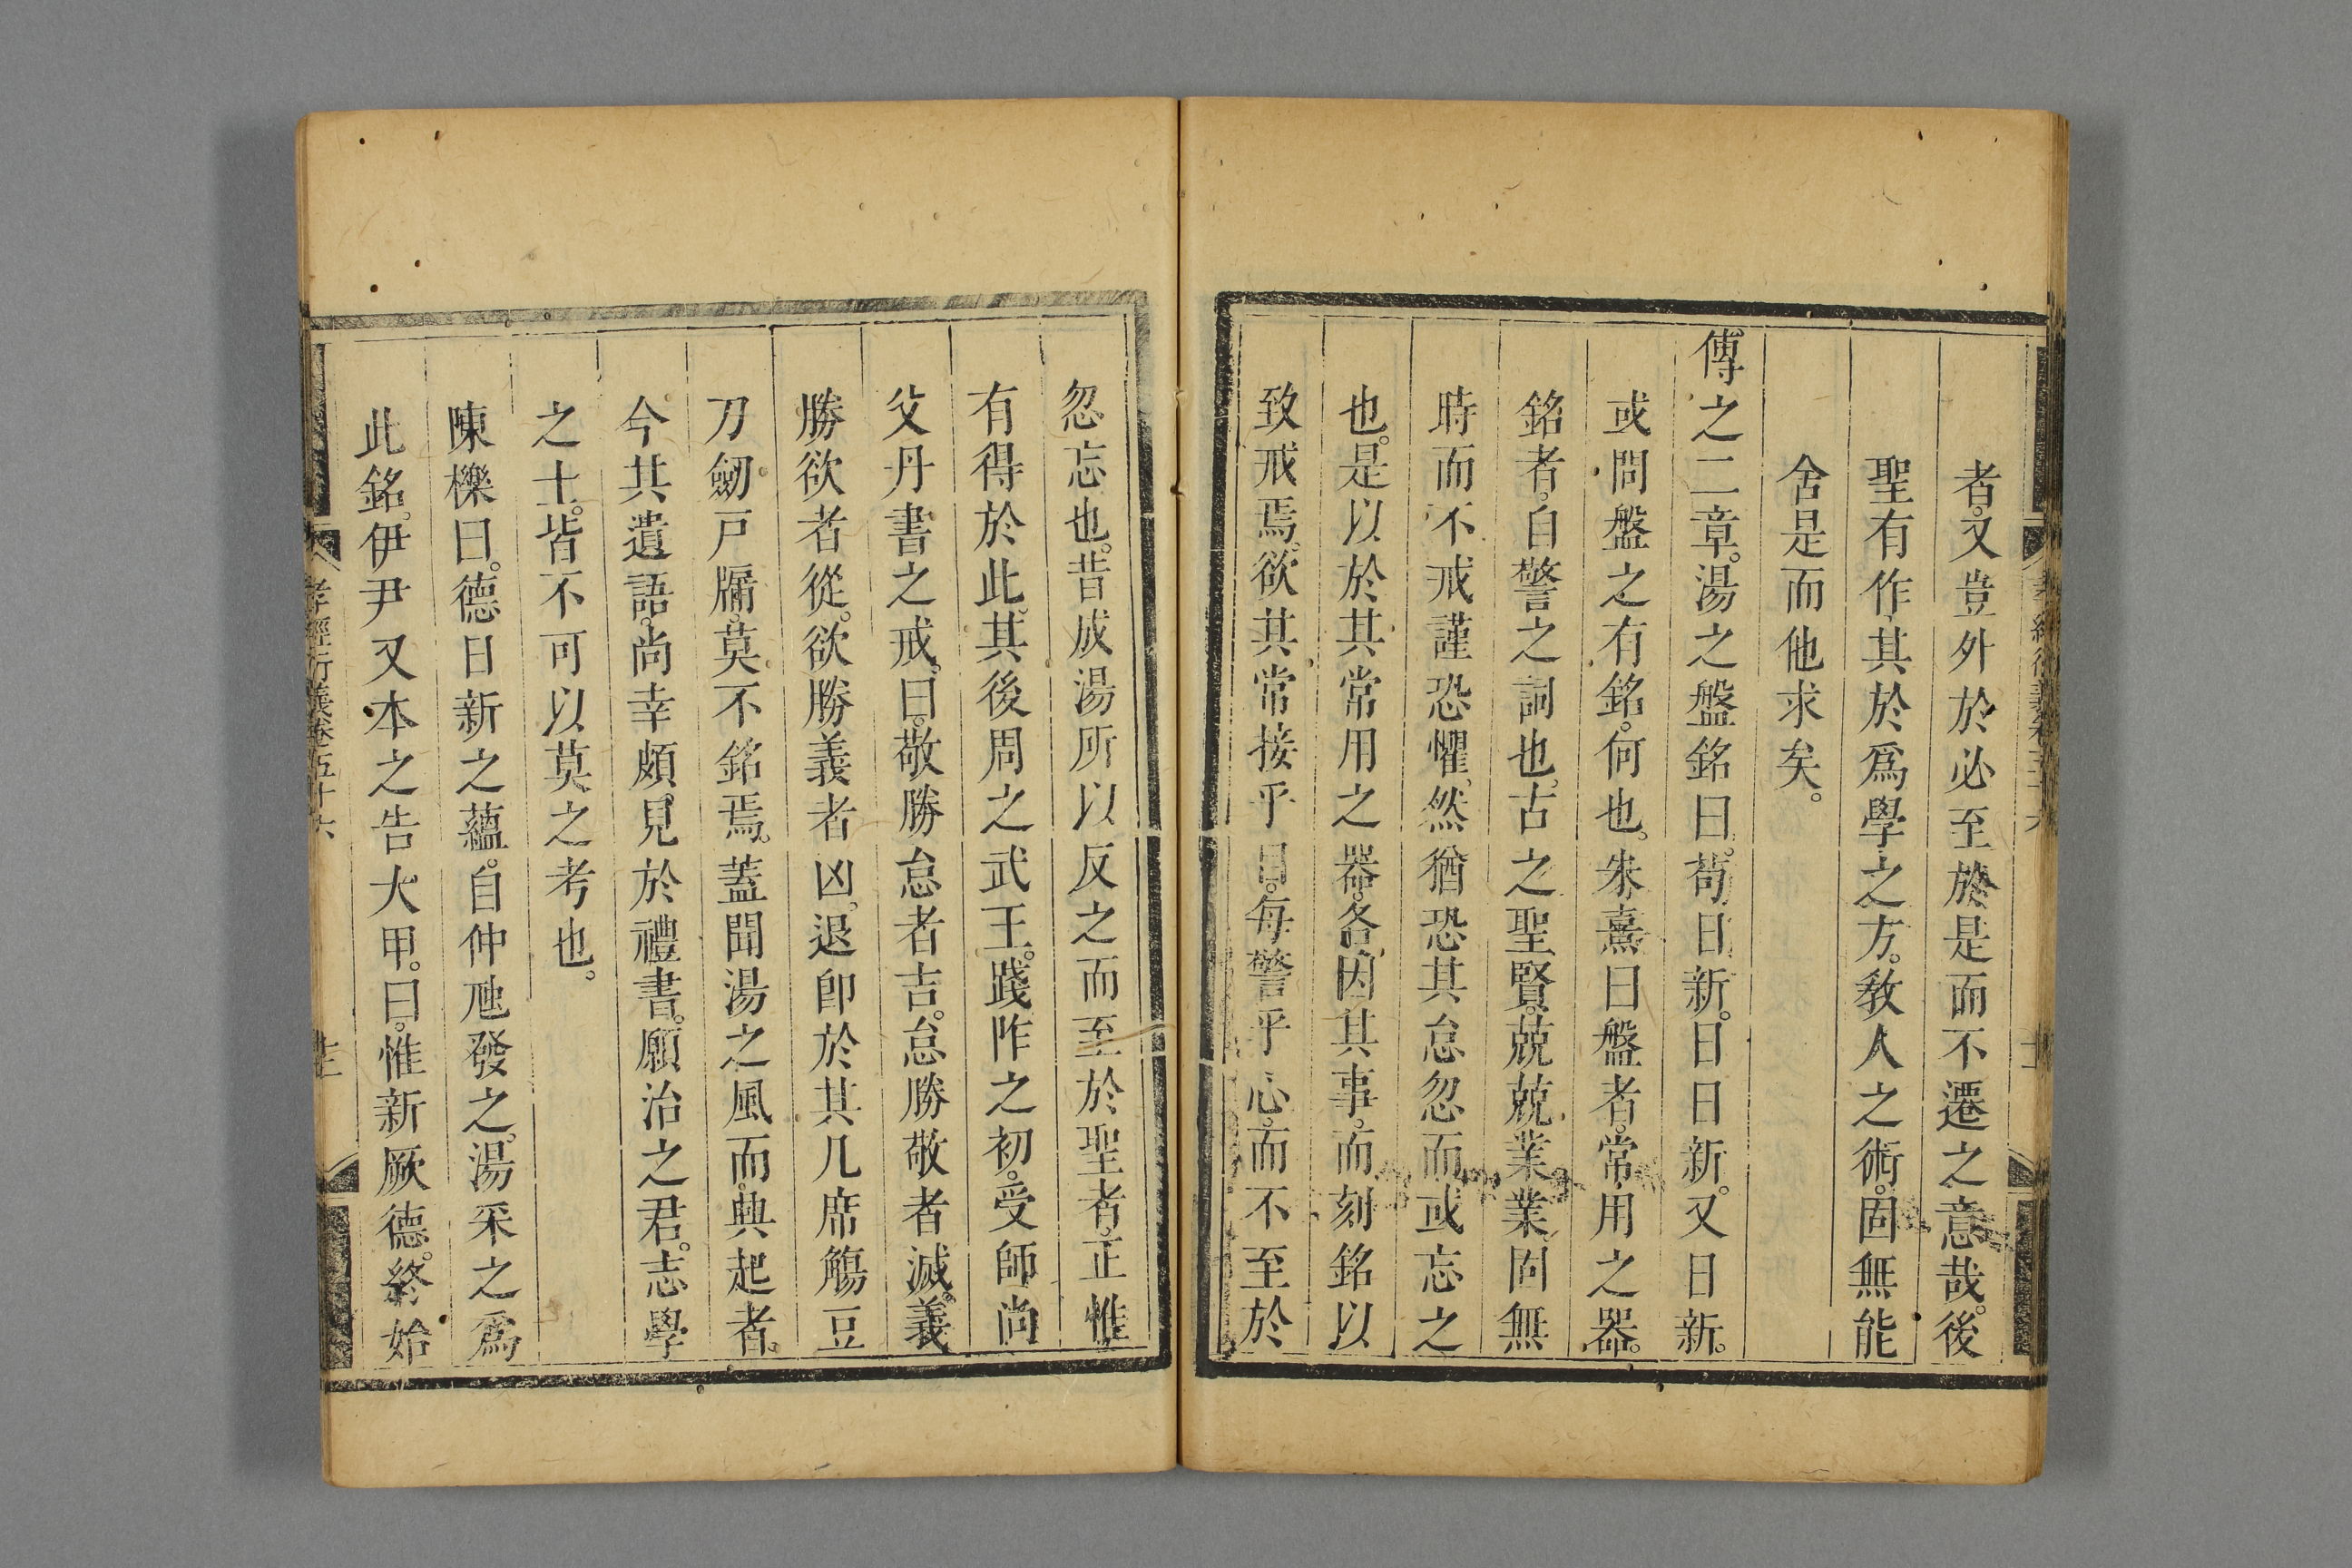 者。又豈外於必至於是而不遷之意哉。後
聖有作其於爲學之方。敎人之術。固無能
舍是而他求矣。
傳之二章。湯之盤銘曰。苟日新。日日新。又日新。
或問盤之有銘。何也。朱熹曰盤者。常用之器。
銘者。自警之詞也。古之聖賢。兢兢業業。固無
時而不戒謹恐懼。然猶恐其怠忽而或忘之
也。是以於其常用之器。各因其事。而刻銘以
致戒焉。欲其常接乎目。每警乎心。而不至於
忽忘也。昔成湯所以反之而至於聖者。正惟
有得於此。其後周之武王。踐阼之初。受師尚
父丹書之戒。曰。敬勝怠者吉。怠勝敬者滅。義
勝欲者從。欲勝義者凶。退卽於其几席觴豆
刀劒戸牖。莫不銘焉。蓋聞湯之風而。興起者。
今其遺語。尚幸頗。見於禮書。願治之君。志學
之士。皆不可以莫之考也。
陳櫟曰。德日新之蘊。自仲虺發之。湯采之爲
此銘。伊尹又本之告太甲。曰。惟新厥德。終始
孝經衍義卷五十六